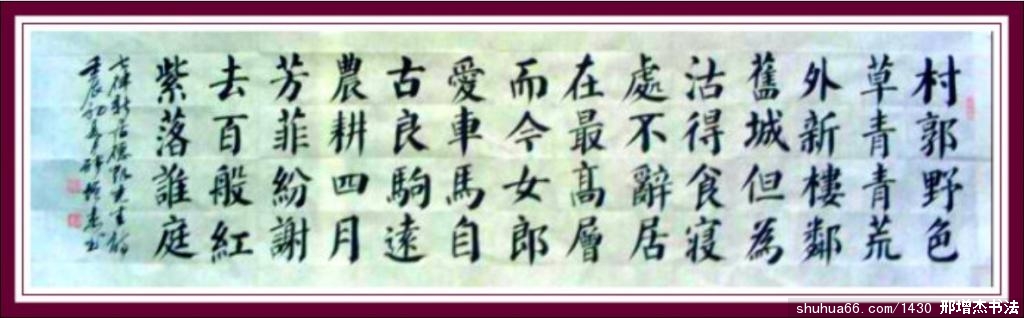 村郭野色
草青青荒
外新樓鄰
舊城但為
沽得食寝
處不辭居
在最高層
而今女郎
愛車馬自
古良駒遠
農耕四月
芳菲紛謝
去百般紅
紫落誰庭
七律新居德凯先生韵
壬辰初春邢增杰书
shuhua66.com/1430 邢增杰书法